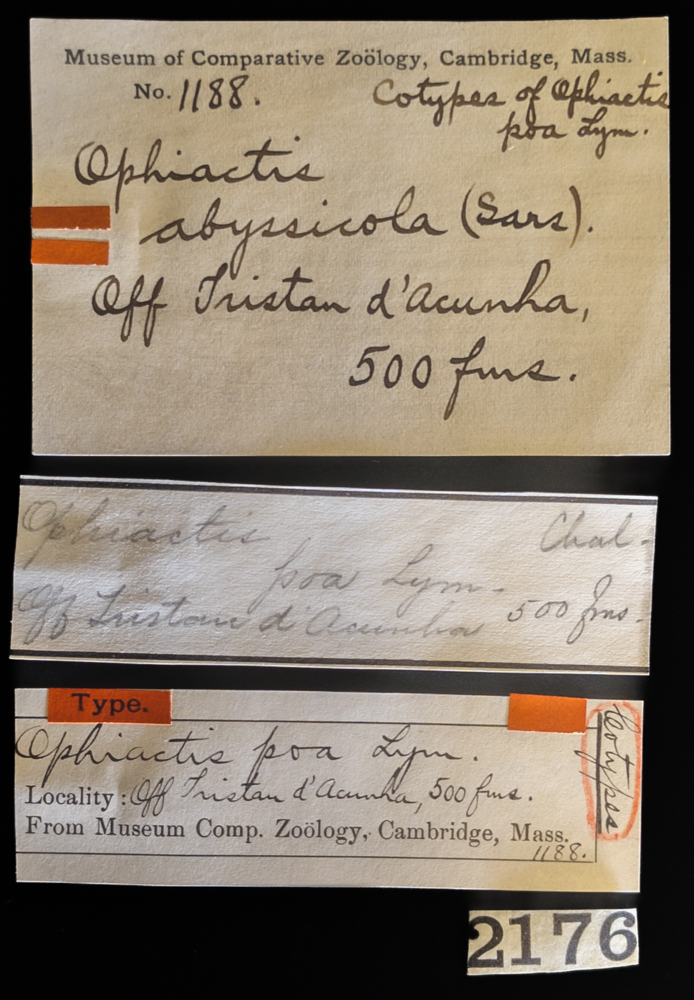 Museum of Comparative Zoölogy, Cambridge, Mass.
No. 1188.
Cotypes of Ophiactis
poa Lym.
Ophiactis
abyssicola (Sars).
Off Tristan d'Acunha,
500 fms.
Ophiactis Chal-
poa Lym.
Off Tristan d'Acunha 500 fms.
Type.
Ophiactis poa Lym.
Locality: Off Tristan d'Acunha, 500 fms.
From Museum Comp. Zoölogy, Cambridge, Mass.
1188.
Cotypes
2176